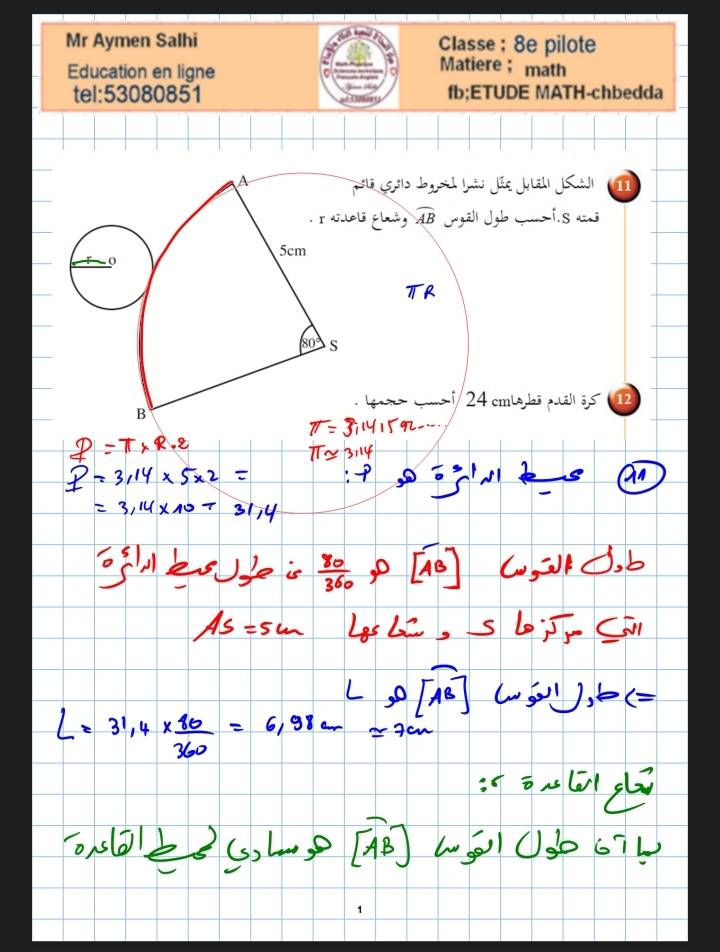 Mr Aymen Salhi
Education en ligne
tel:53080851
Classe ; 8e pilote
Matiere ; math
fb;ETUDE MATH-chbedda
11 الشكل المقابل يمثّل نشرا لمخروط دائري قائم
قمته S.أحسب طول القوس AB وشعاع قاعدته r .
A
5cm
r o
80°
S
B
π R
12 كرة القدم قطرها 24 cm أحسب حجمها .
π = 3,141592.....
π ≃ 3,14
P = π × R.2
11 محيط الدائرة هو P :
P = 3,14 × 5 × 2 =
= 3,14 × 10 = 31,4
طول القوس [AB] هو 80/360 من طول محيط الدائرة
التي مركزها S و شعاعها AS = 5cm
=> طول القوس [AB] هو L
L = 31,4 × 80/360 = 6,98 cm ≃ 7cm
شعاع القاعدة r :
بما أن طول القوس [AB] هو مساوي لمحيط القاعدة
1